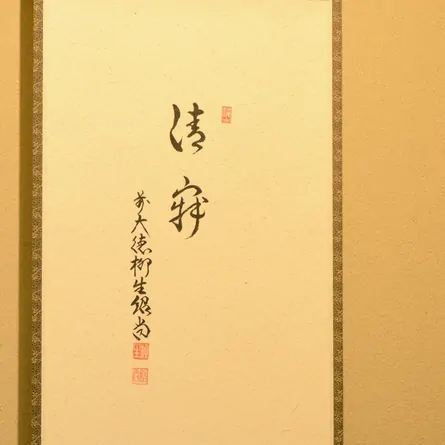 清寂
前大徳柳生紹尚